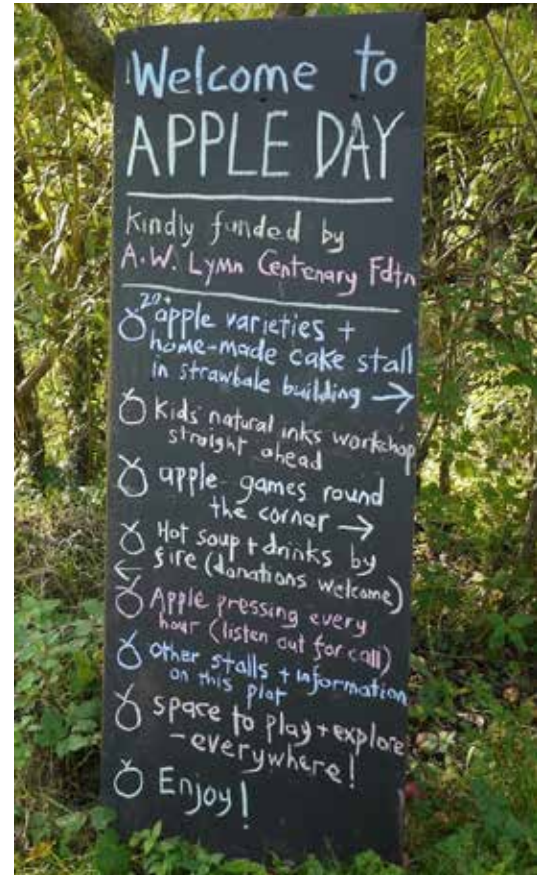 Welcome to
APPLE DAY
Kindly funded by
A.W. Lymn Centenary Fdtn
20+
apple varieties +
home-made cake stall
in strawbale building →
Kids' natural inks workshop
straight ahead
apple games round
the corner →
Hot soup + drinks by
← fire (donations welcome)
Apple pressing every
hour (listen out for call)
other stalls + information
on this plot
space to play + explore
- everywhere!
Enjoy!